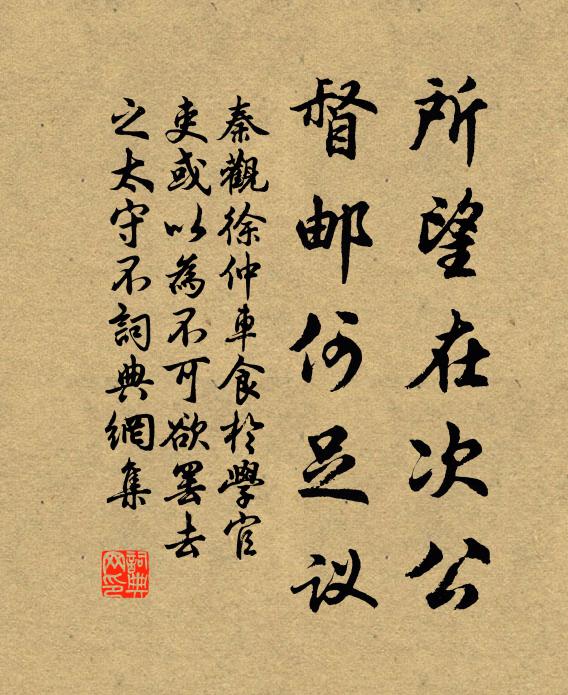 所望在次公
督邮何足议
秦觀徐仲車食於學官
吏或以為不可欲罢去
之太守不詞典網集
詞典
网印